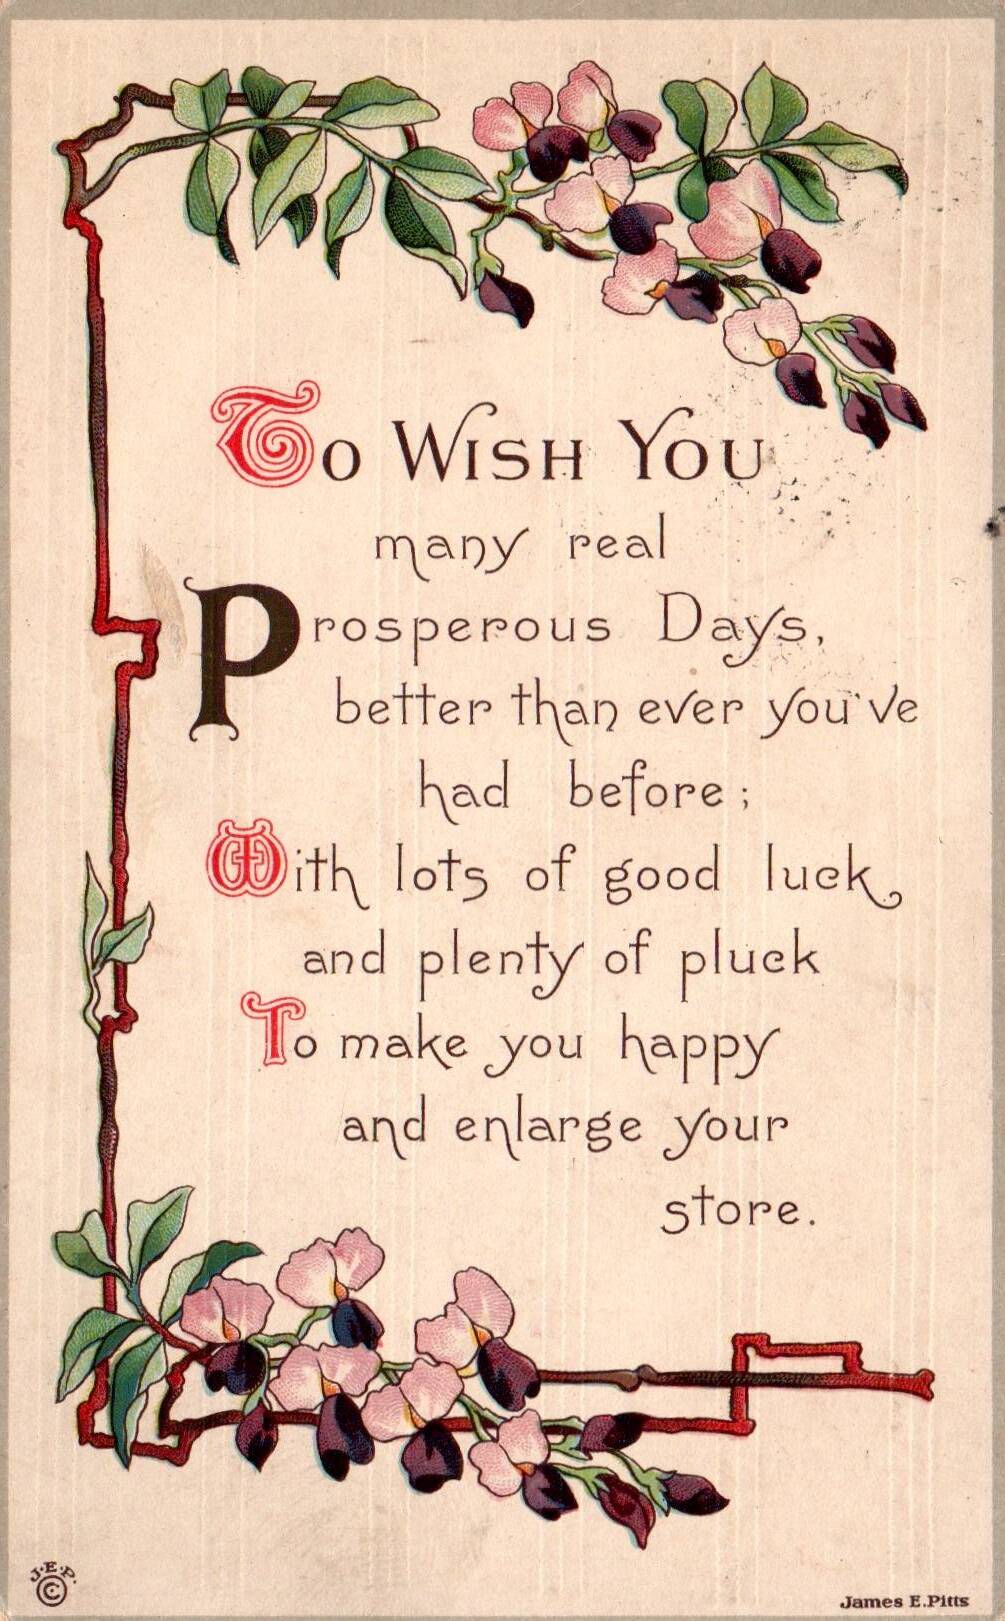 To Wish You
many real
Prosperous Days,
better than ever you've
had before;
With lots of good luck
and plenty of pluck
To make you happy
and enlarge your
store.
J.E.P.
©
James E. Pitts